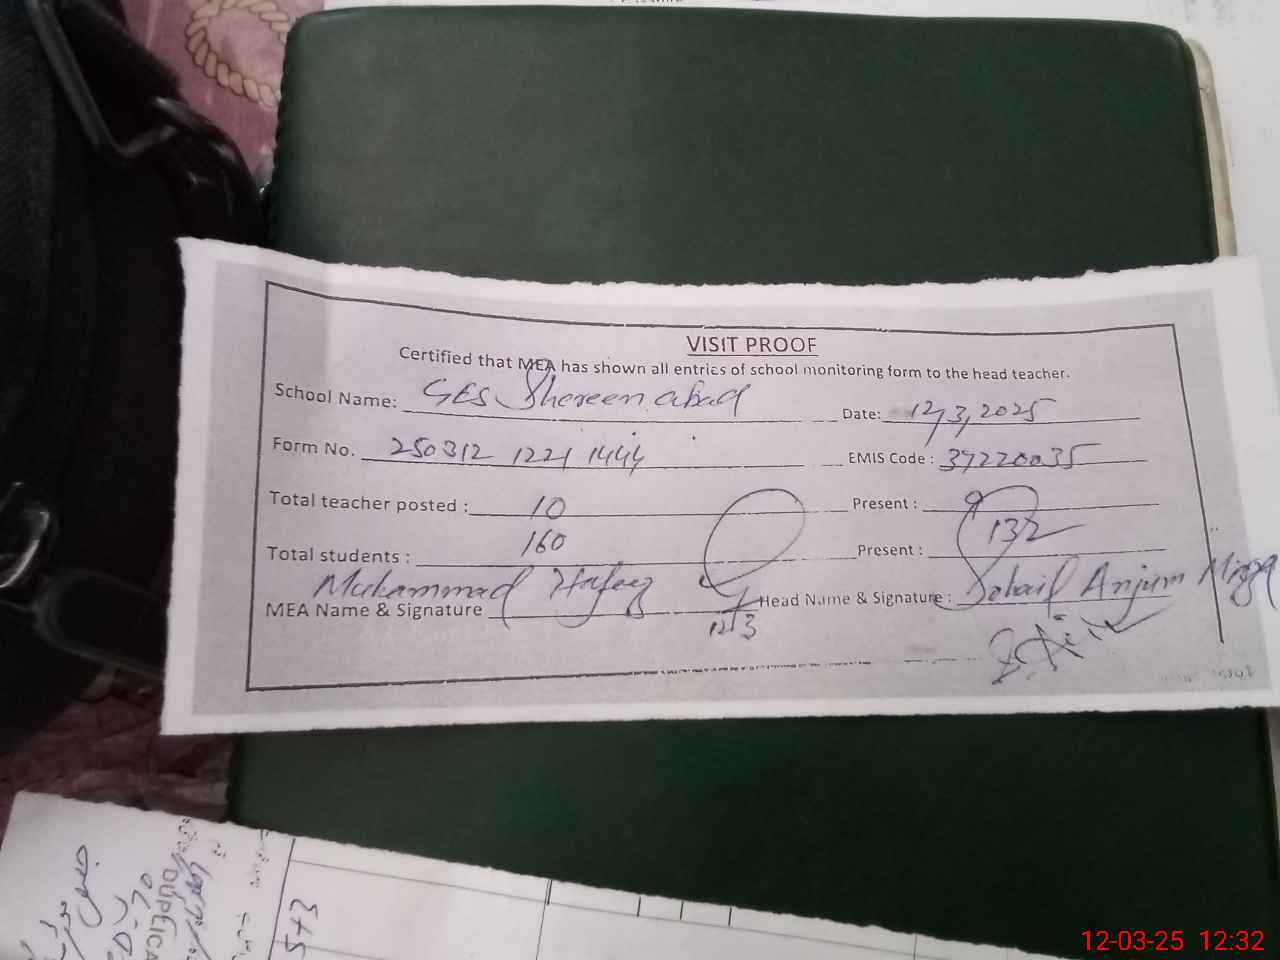 VISIT PROOF
Certified that MEA has shown all entries of school monitoring form to the head teacher.
School Name: GES Shereen abad Date: 12/3/2025
Form No. 250312 1221 1444 EMIS Code : 37220035
Total teacher posted : 10 Present : 9
Total students : 160 Present : 132
MEA Name & Signature Muhammad Hafeez 12/3 Head Name & Signature : Sohail Anjum Mirza
5+3
12-03-25 12:32